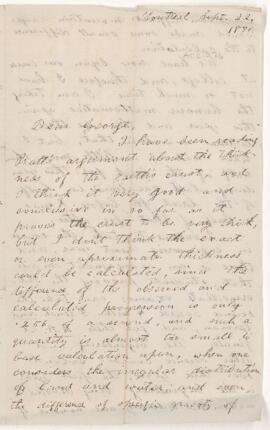 Montreal, Sept. 22,
187
Dear George,
I have been reading
Pratt's argument about the thick
ness of the earth's crust, and
I think it very good and
conclusive in so far as it
proves the crust to be very thick,
but I don't think the exact
or even aproximate thickness
could be calculated, since the
difference of the observed and
calculated precession is only
of a second, and such a
quantity is almost too small to
base calculation upon, when one
considers the irregular distribution
of land and water, and even
the difference of specific gravity of